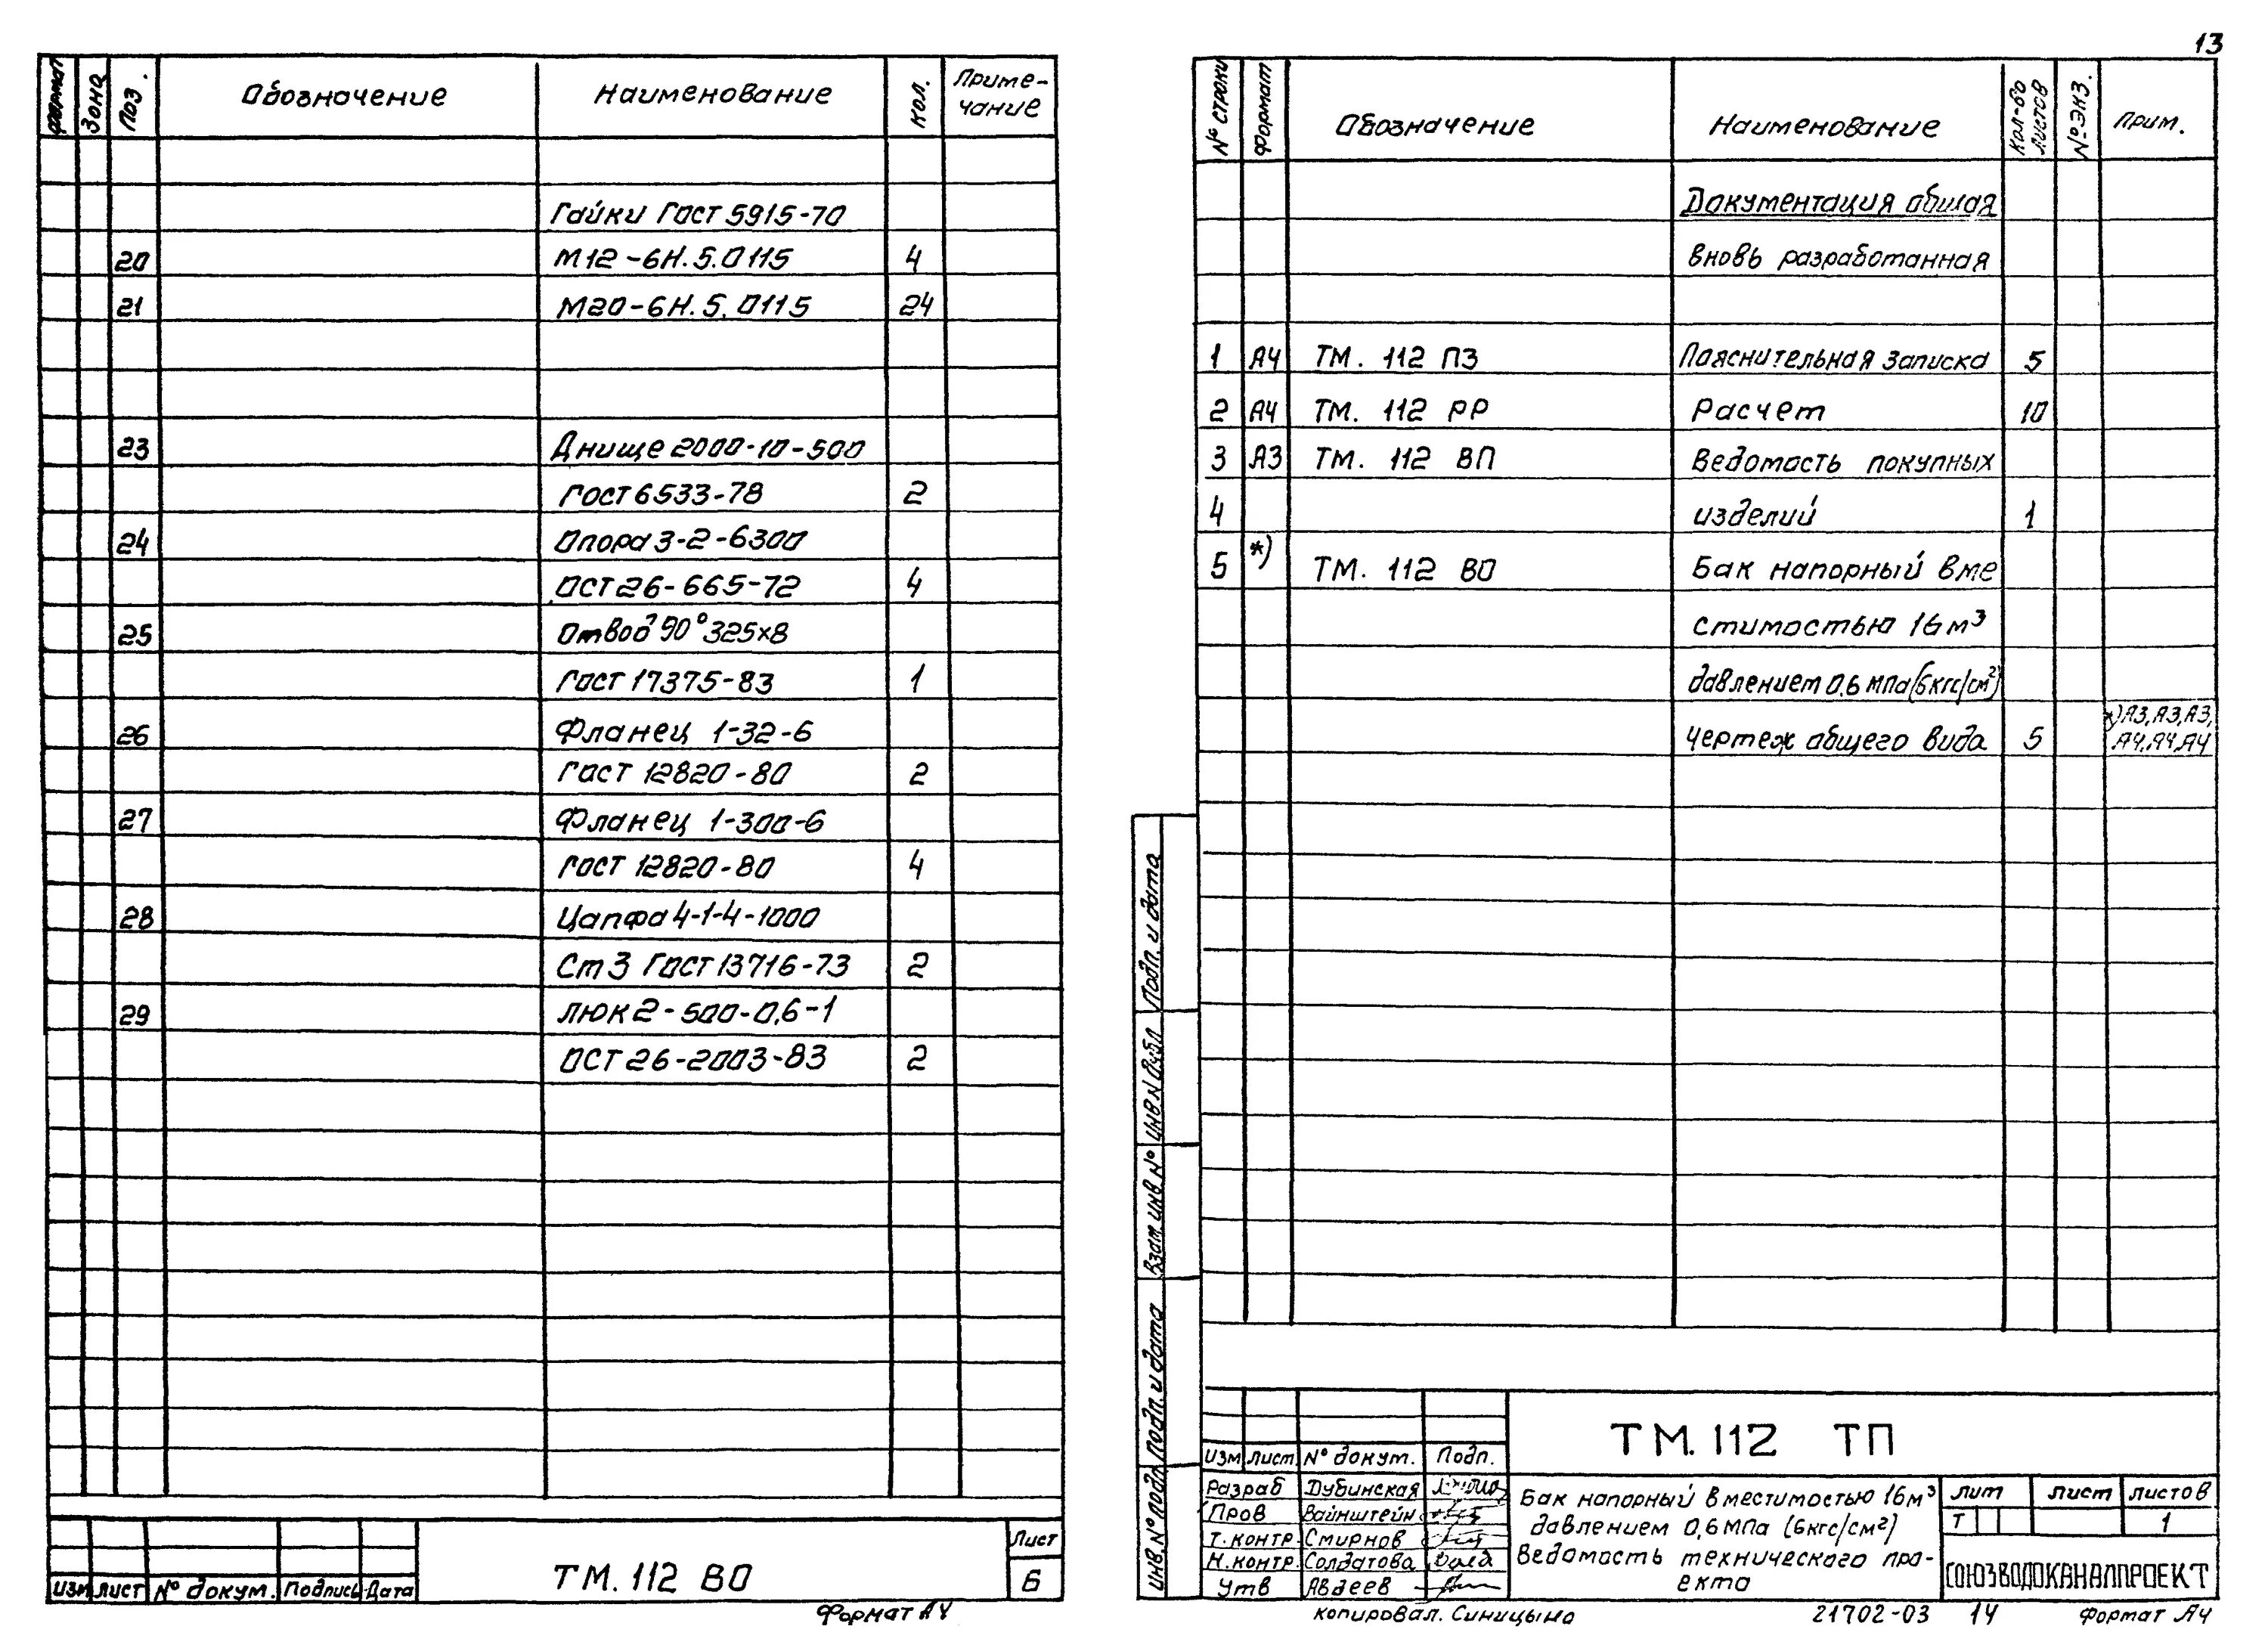 13
Формат Зона Поз. Обозначение Наименование Кол. Приме-
чание
Гайки Гост 5915-70
20 М12-6Н.5.0115 4
21 М20-6Н.5.0115 24
23 Днище 2000-10-500
Гост 6533-78 2
24 Опора 3-2-6300
ОСТ 26-665-72 4
25 Отвод 90° 325х8
Гост 17375-83 1
26 Фланец 1-32-6
Гост 12820-80 2
27 Фланец 1-300-6
Гост 12820-80 4
28 Цапфа 4-1-4-1000
Ст 3 Гост 13716-73 2
29 Люк 2-500-0,6-1
ОСТ 26-2003-83 2
Изм лист № докум. Подпись Дата
ТМ. 112 ВО
Лист
6
Формат А4
№ строки Формат Обозначение Наименование Кол-во листов № экз. Прим.
Документация общая
вновь разработанная
1 А4 ТМ. 112 ПЗ Пояснительная записка 5
2 А4 ТМ. 112 РР Расчет 10
3 А3 ТМ. 112 ВП Ведомость покупных
4 изделий 1
5 *) ТМ. 112 ВО Бак напорный вме
стимостью 16 м³
давлением 0,6 МПа (6кгс/см²)
*) А3, А3, А3,
чертеж общего вида 5 А4, А4, А4
Инв. № подл. Подп. и дата Взам. инв. № Инв. № дубл Подп. и дата
Изм лист № докум. Подп.
Разраб Дубинская
Пров Вайнштейн
Т.контр. Смирнов
Н.контр. Солдатова
Утв Авдеев
ТМ. 112 ТП
Бак напорный вместимостью 16м³
давлением 0,6 МПа (6кгс/см²)
Ведомость технического про-
екта
Лит Лист Листов
Т 1
СОЮЗВОДОКАНАЛПРОЕКТ
Копировал. Синицына 21702-03 14 Формат А4